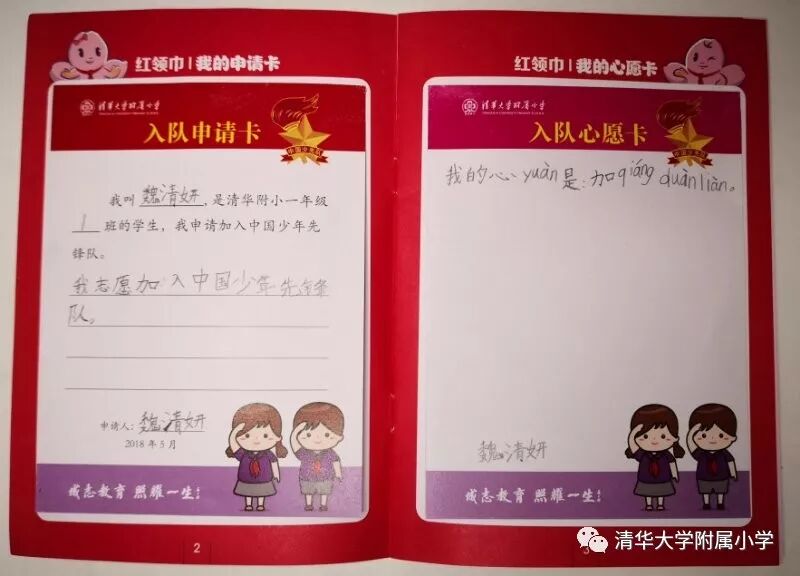 红领巾 | 我的申请卡
清华大学附属小学
入队申请卡
中国少先队
我叫 魏清妍 ,是清华附小一年级
1 班的学生,我申请加入中国少年先
锋队。
我志愿加入中国少年先锋
队。
申请人:魏清妍
2018 年 5 月
成志教育 照耀一生
2
红领巾 | 我的心愿卡
清华大学附属小学
入队心愿卡
中国少先队
我的心yuàn是:加qiáng duànliàn。
魏清妍
成志教育 照耀一生
3
清华大学附属小学